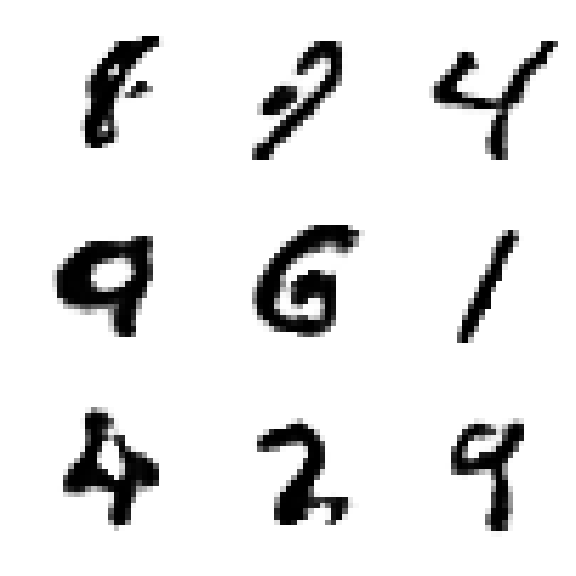 8 2 4
9 6 1
4 2 9